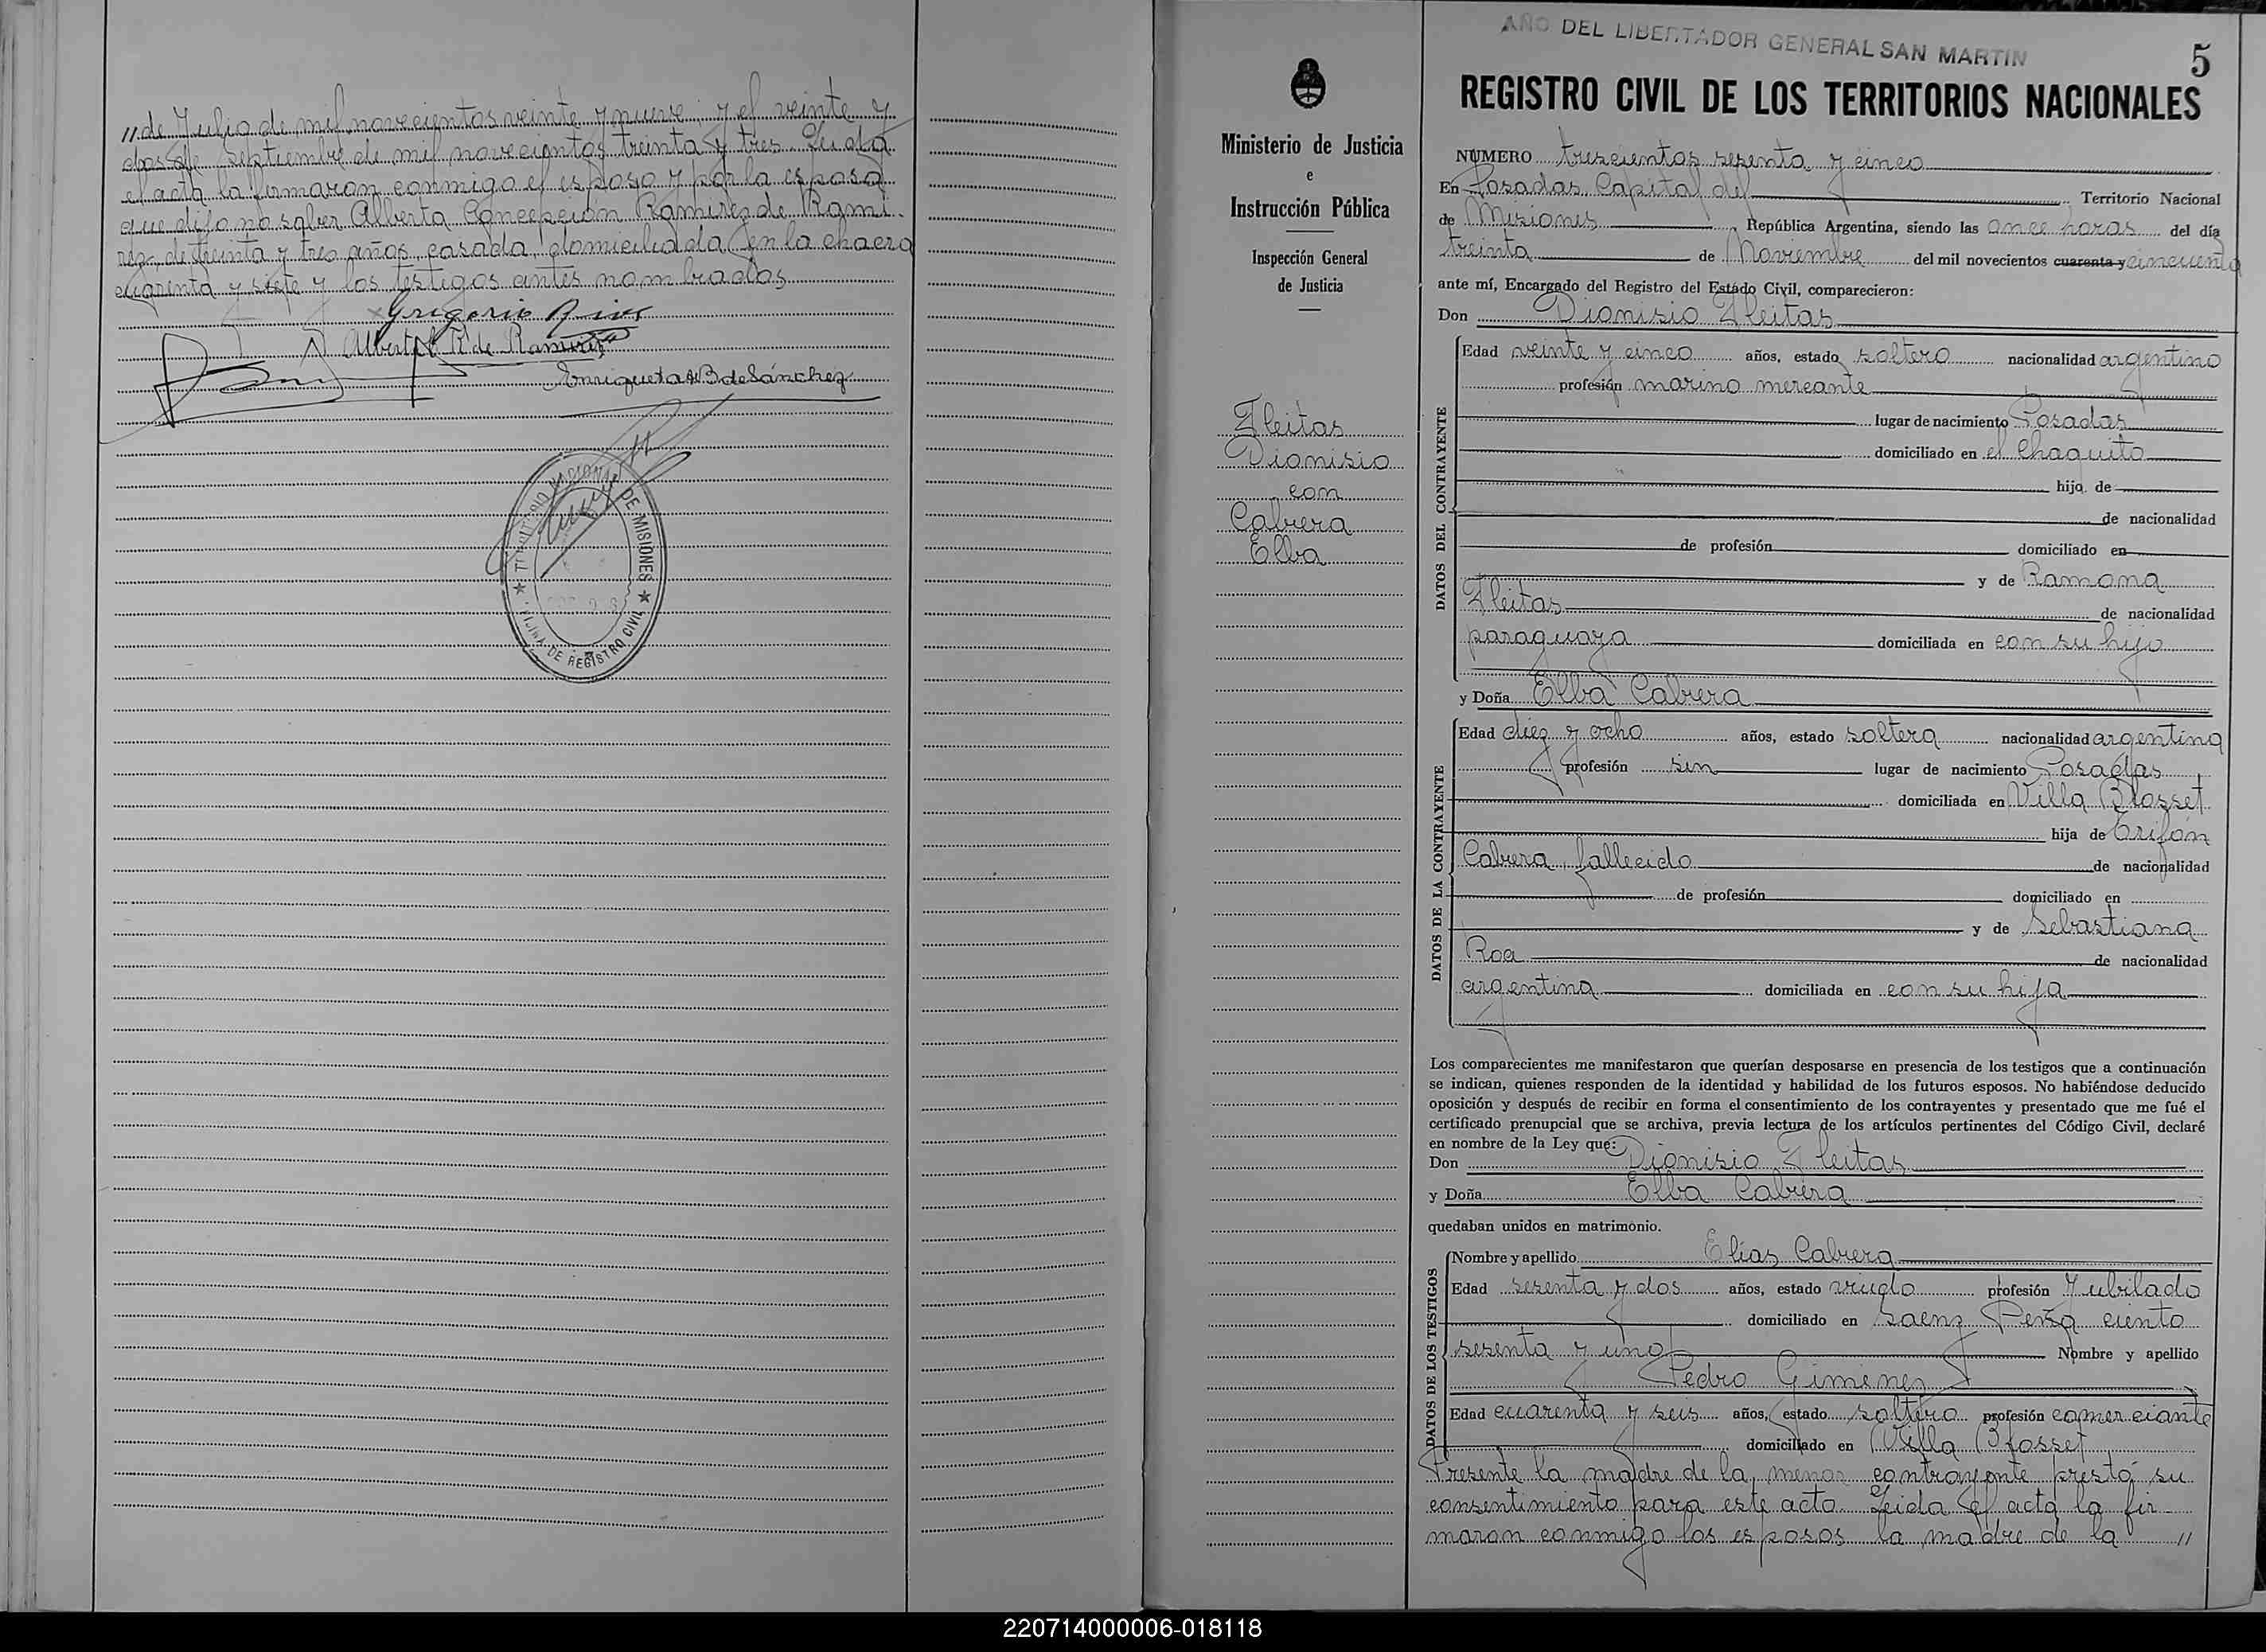 "de Julio de mil novecientos veinte y nueve y el veinte y
dos de Septiembre de mil novecientos treinta y tres. Leida
el acta la firmaron conmigo el esposo y por la esposa
que dijo no saber Alberta Concepcion Ramirez de Rami-
rez, de treinta y tres años, casada, domiciliada en la chacra
cuarenta y siete y los testigos antes nombrados
Gregorio Rios
Alberta R de Ramirez
Enriqueta B de Sánchez
DE MISIONES
DE REGISTRO CIVIL
AÑO DEL LIBERTADOR GENERAL SAN MARTIN
5
Ministerio de Justicia
e
Instrucción Pública
Inspección General
de Justicia
Fleitas
Dionisio
con
Cabrera
Elba
REGISTRO CIVIL DE LOS TERRITORIOS NACIONALES
NÚMERO trescientos sesenta y cinco
En Posadas Capital del Territorio Nacional
de Misiones República Argentina, siendo las once horas del día
treinta de Noviembre del mil novecientos cuarenta y cincuenta
ante mí, Encargado del Registro del Estado Civil, comparecieron:
Don Dionisio Fleitas
DATOS DEL CONTRAYENTE
Edad veinte y cinco años, estado soltero nacionalidad argentino
profesión marino mercante
lugar de nacimiento Posadas
domiciliado en el Chaquito
hijo de
de nacionalidad
de profesión domiciliado en
y de Ramona
Fleitas de nacionalidad
paraguaya domiciliada en con su hijo
y Doña Elba Cabrera
DATOS DE LA CONTRAYENTE
Edad diez y ocho años, estado soltera nacionalidad argentina
profesión sin lugar de nacimiento Posadas
domiciliada en Villa Blosset
hija de Trifón
Cabrera, fallecido de nacionalidad
de profesión domiciliado en
y de Sebastiana
Roa de nacionalidad
argentina domiciliada en con su hija
Los comparecientes me manifestaron que querían desposarse en presencia de los testigos que a continuación
se indican, quienes responden de la identidad y habilidad de los futuros esposos. No habiéndose deducido
oposición y después de recibir en forma el consentimiento de los contrayentes y presentado que me fué el
certificado prenupcial que se archiva, previa lectura de los artículos pertinentes del Código Civil, declaré
en nombre de la Ley que:
Don Dionisio Fleitas
y Doña Elba Cabrera
quedaban unidos en matrimonio.
DATOS DE LOS TESTIGOS
Nombre y apellido Elias Cabrera
Edad sesenta y dos años, estado viudo profesión Jubilado
domiciliado en Saenz Peña ciento
sesenta y uno Nombre y apellido
Pedro Gimenez
Edad cuarenta y seis años, estado soltero profesión comerciante
domiciliado en Villa Blosset
Presente la madre de la menor contrayente prestó su
consentimiento para este acto. Leida el acta la fir-
maron conmigo los esposos la madre de la "
220714000006-018118